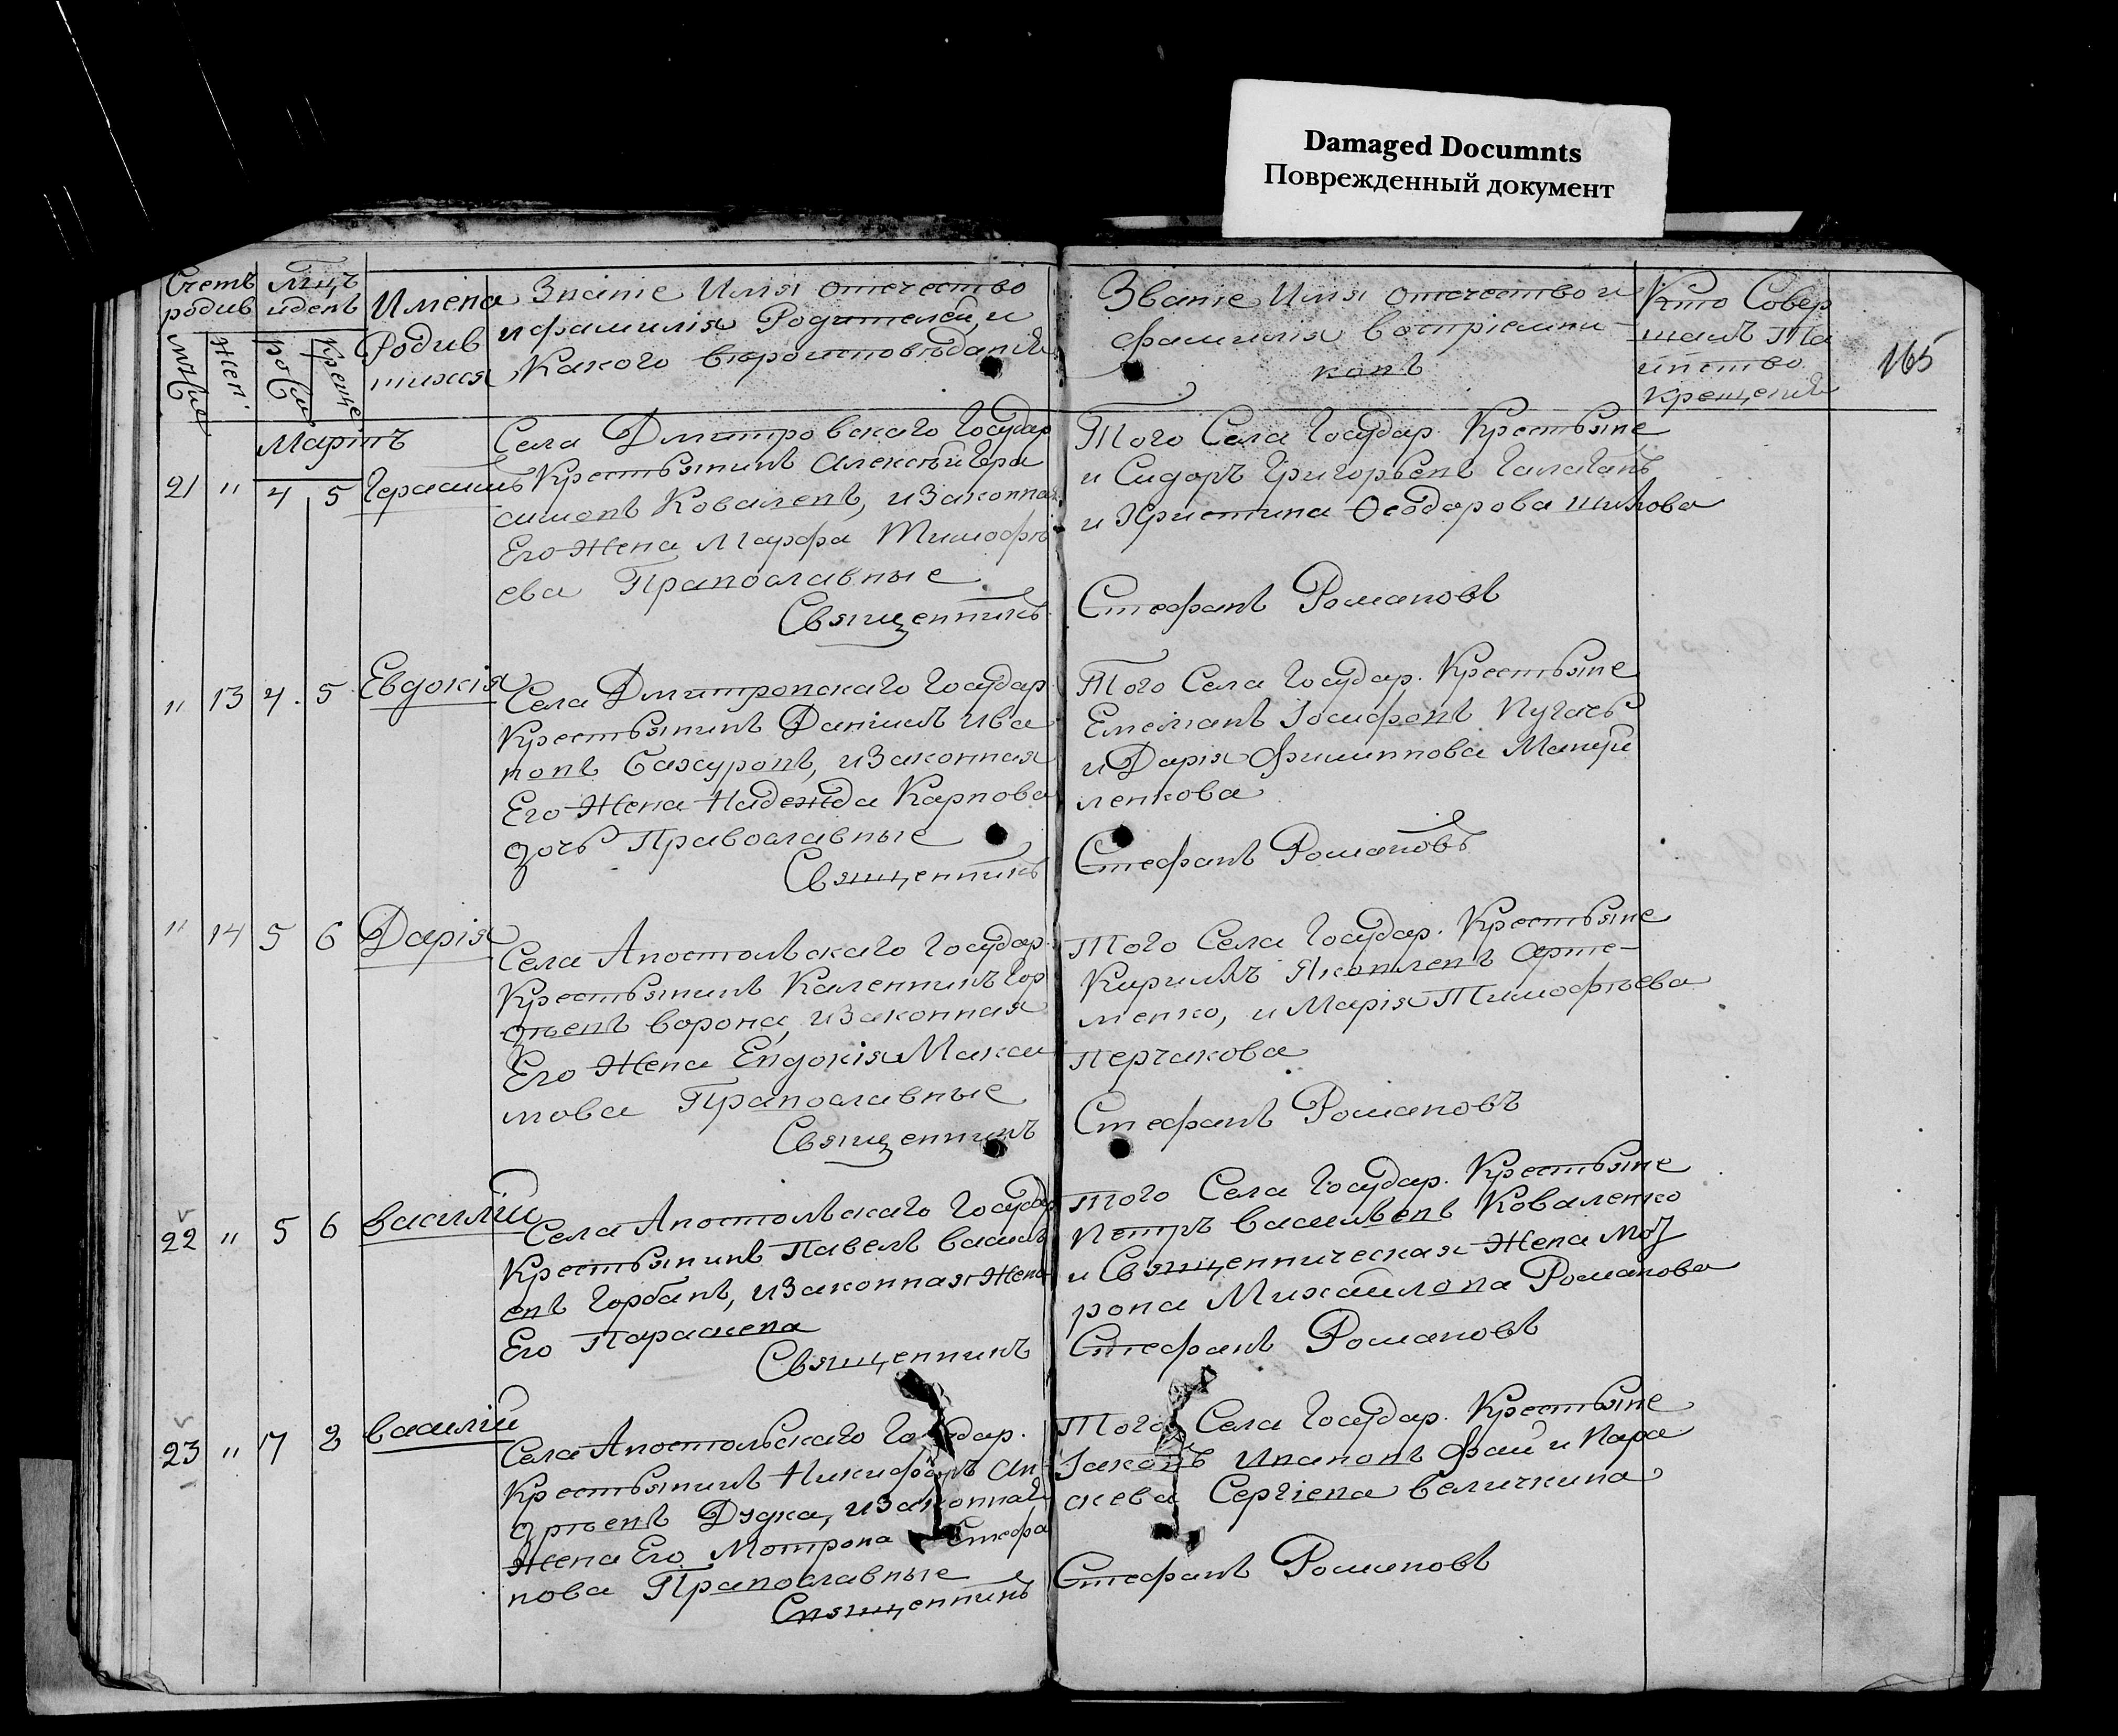 Damaged Documnts
Поврежденный документ
165
Счетъ родив
Мцъ идень
Имена Родив шихся
Званіе Имя отечество
и фамилія Родителей, и
Какого вѣроисповѣданія
Званіе Имя отечество и
фамилія воспріемни-
ковъ
Кто Совер
шалъ Та
инство
крещенія
Мартъ
21 " 4 5 Герасимъ
Села Дмитровскаго Государ
Крестьянинъ Алексѣй Гера
симовъ Коваленъ, и законная
Его Жена Марфа Тимофѣ
ева Православные
Священникъ
Того Села Государ. Крестьяне
и Сидоръ Григорьевъ Галаганъ
и Христина Ѳеодорова
Стефанъ Романовъ
" 13 4 5 Евдокія
Села Дмитровскаго Государ
Крестьянинъ Даніилъ Ива
новъ Бахуровъ, и законная
Его Жена Надежда Карпова
дочь Православные
Священникъ
Того Села Государ. Крестьяне
Емеліанъ Іосифовъ Пугачъ
и Дарія Филиппова
ленкова
Стефанъ Романовъ
" 14 5 6 Дарія
Села Апостольскаго Государ.
Крестьянинъ Каленникъ Гор
дѣевъ Ворона, и законная
Его Жена Евдокія Макси
мова Православные
Священникъ
Того Села Государ. Крестьяне
Кириллъ Яковлевъ Арте-
менко, и Марія Тимофѣева
Перчакова
Стефанъ Романовъ
22 " 5 6 Василій
Села Апостольскаго Государ
Крестьянинъ Павелъ Василь
евъ Горбань, и законная Жена
Его Параскева
Священникъ
Того Села Государ. Крестьяне
Петръ Васильевъ Коваленко
и Священническая Жена
Михайлова Романова
Стефанъ Романовъ
23 " 7 8 Василій
Села Апостольскаго Государ.
Крестьянинъ Никифоръ Ан-
дрѣевъ Дудка, и законная
Жена Его Мотрона Стефа
нова Православные
Священникъ
Того Села Государ. Крестьяне
Іаковъ Ивановъ Фай и Пара
скева Сергіева Величкина
Стефанъ Романовъ